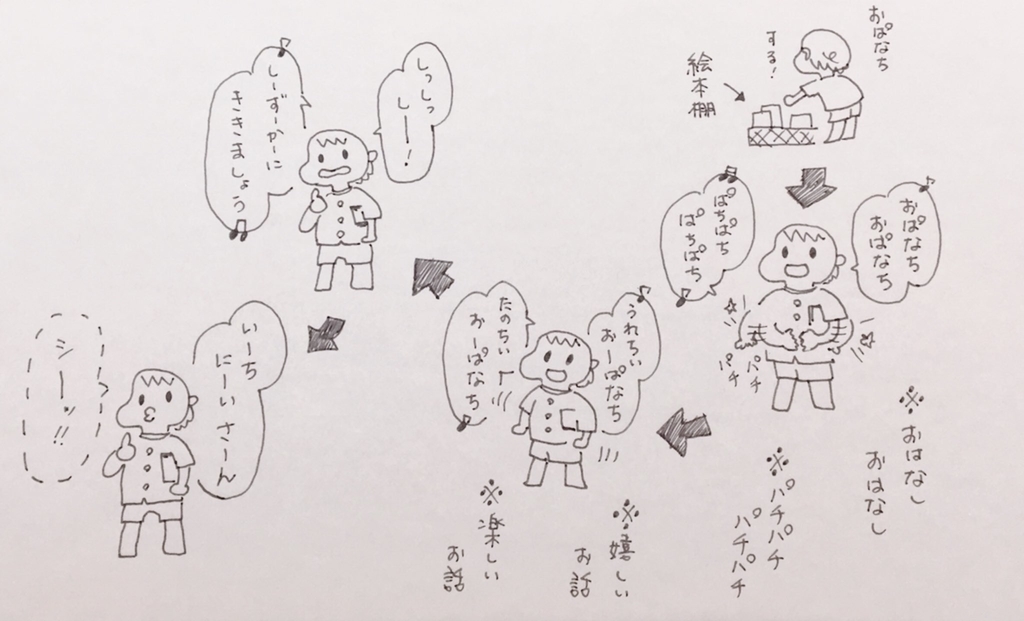 おぱなち
する！
絵本棚
おぱなち
おぱなち
ぱちぱち
ぱちぱち
パチ
パチ
※おはなし
おはなし
※パチパチ
パチパチ
うれちい
おーぱなち
たのちい
おーぱなち
※嬉しい
お話
※楽しい
お話
しっしっ
しー！
しーずーかーに
ききましょう
いーち
にーいさーん
シーッ!!